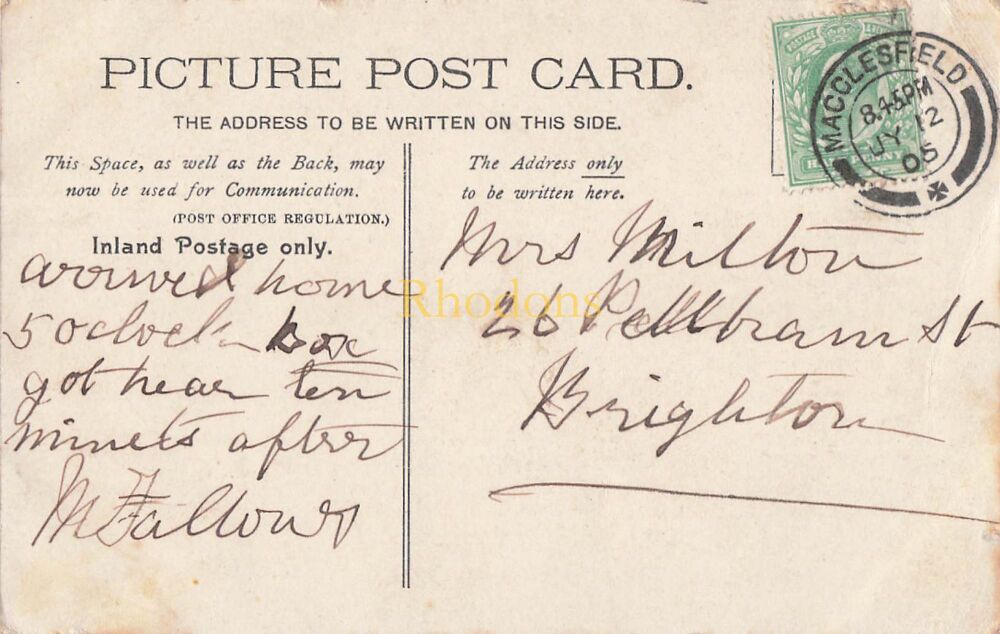 PICTURE POST CARD.
THE ADDRESS TO BE WRITTEN ON THIS SIDE.
This Space, as well as the Back, may
now be used for Communication.
(POST OFFICE REGULATION.)
Inland Postage only.
arrived home
5 oclock box
got hear ten
minets after
M Fallows
The Address only
to be written here.
Mrs Milton
26 Pelham St
Brighton
MACCLESFIELD
8.45PM
JY 12
05
POSTAGE
Rhodons